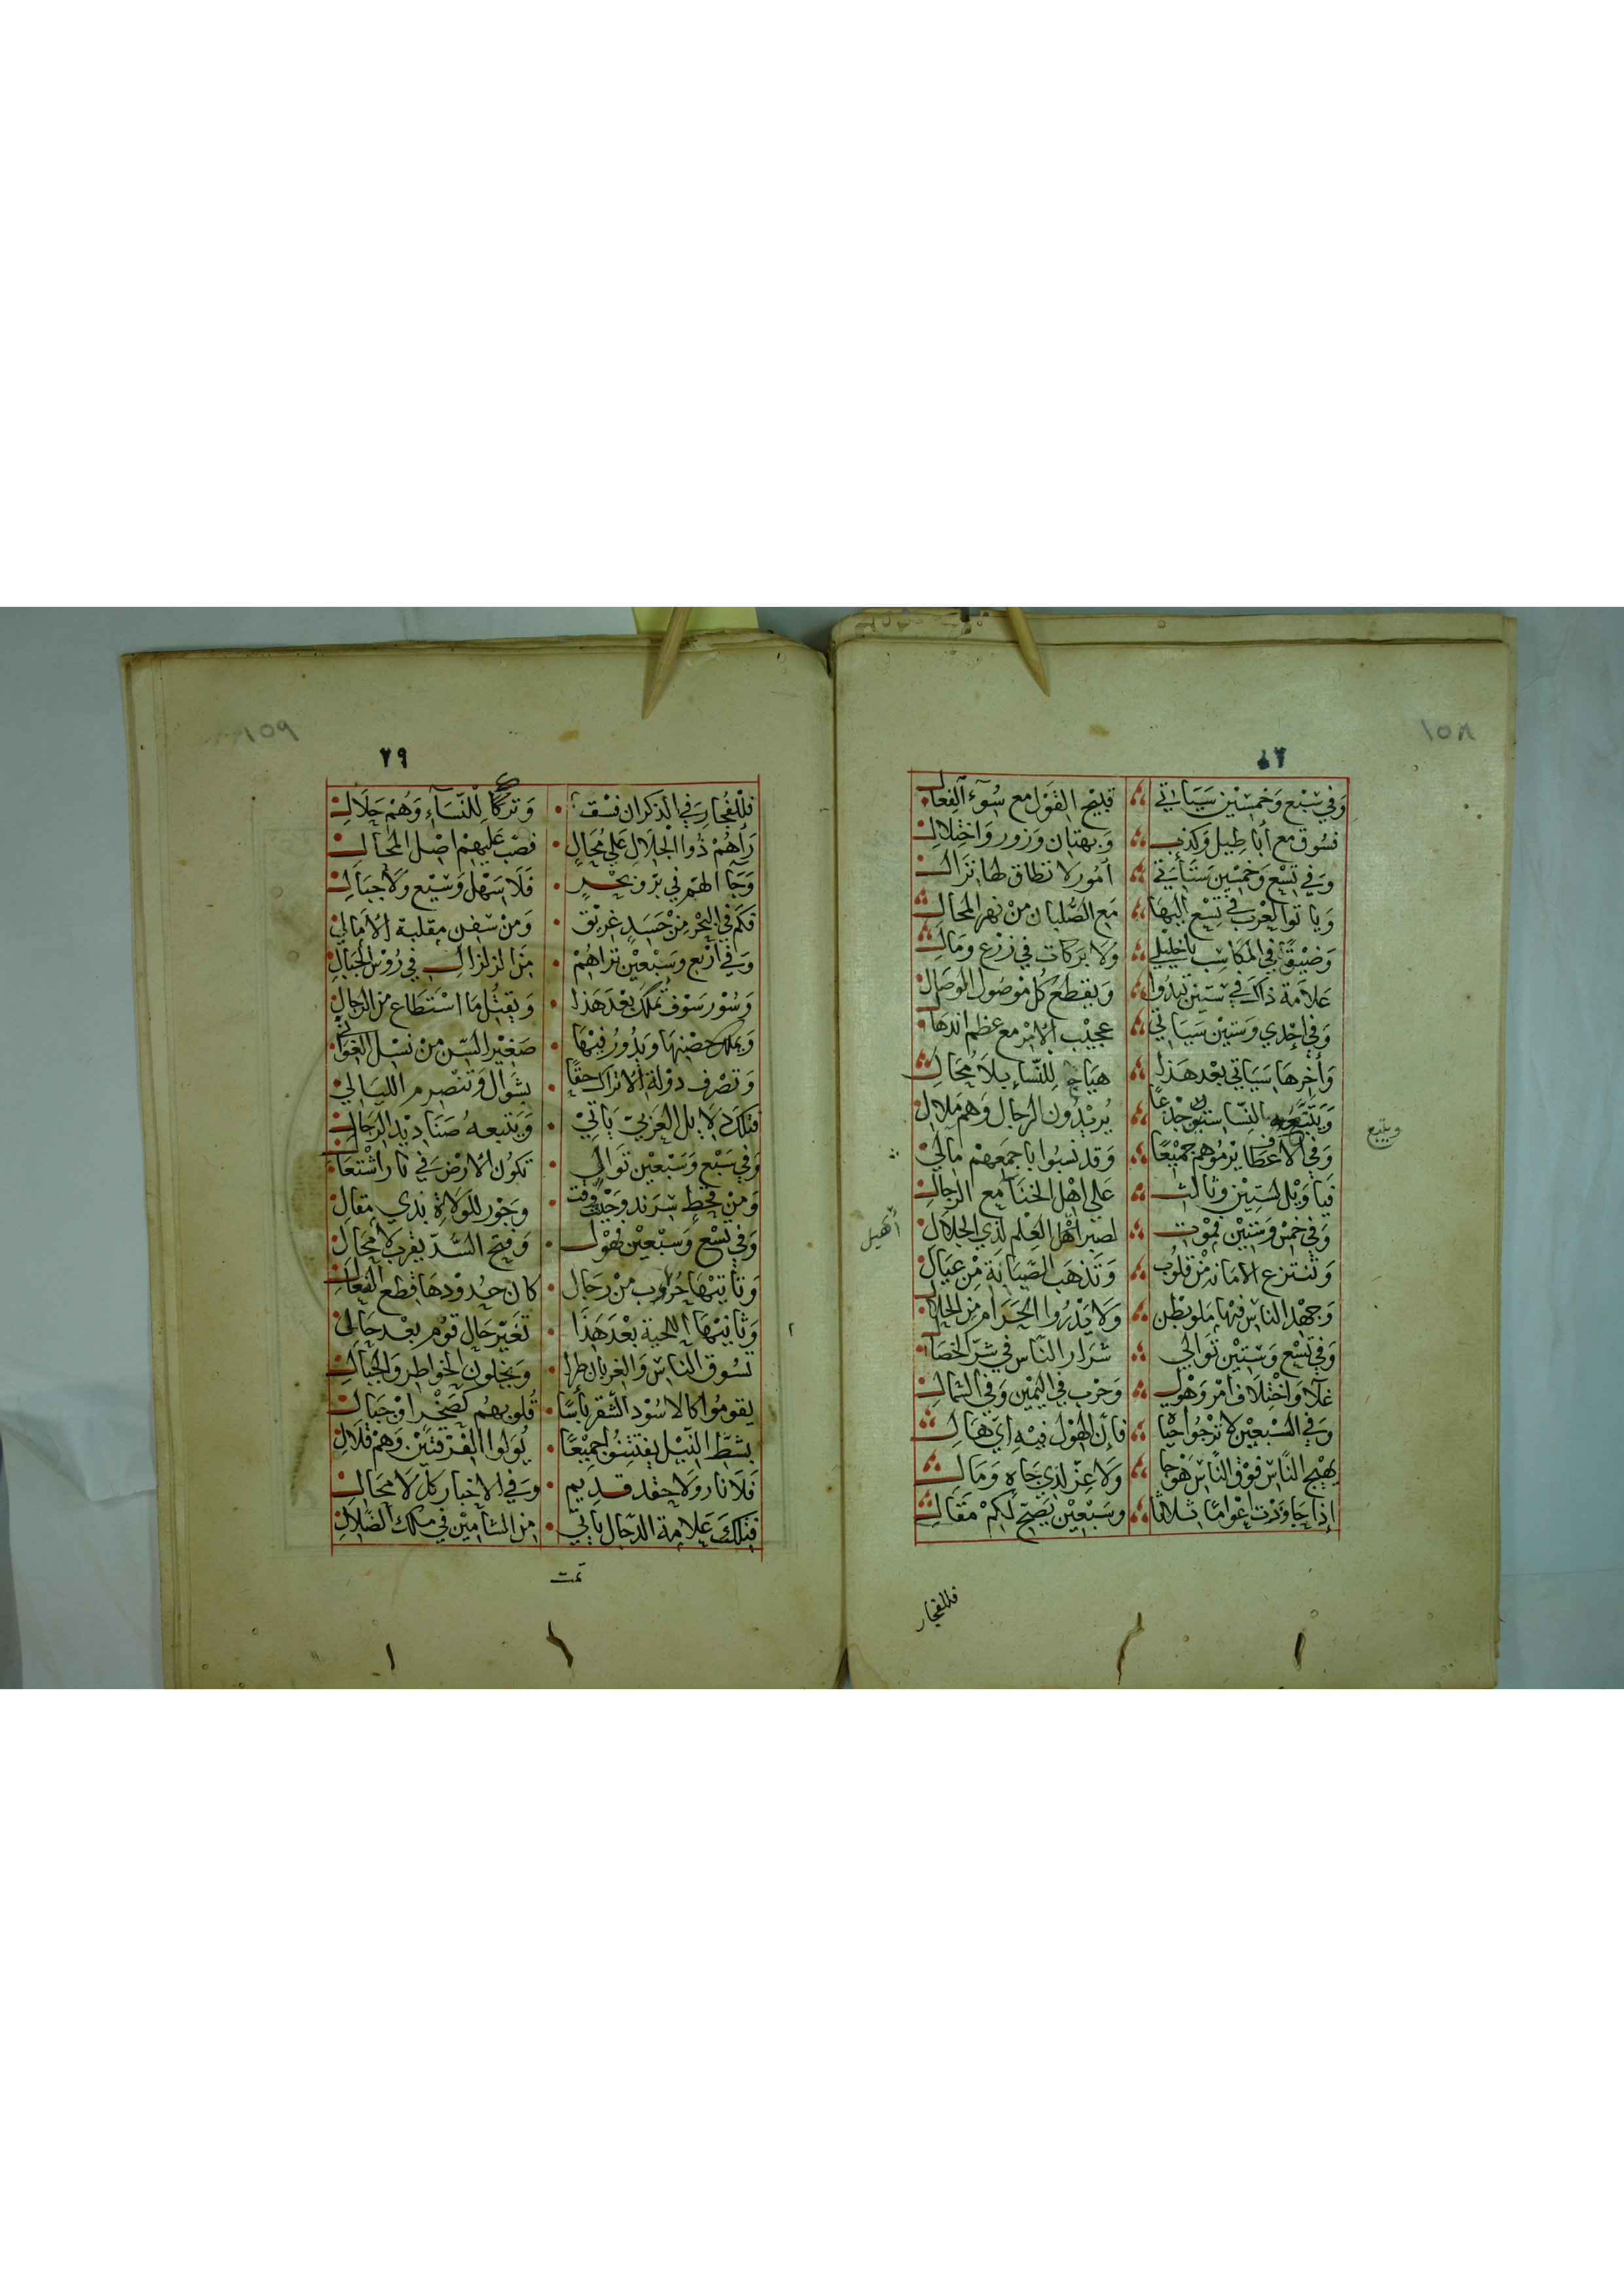 ١٥٨
وَفي سَبْع وَخمْسِين سَيَاتي قبيْح القَوْل مع سُوءِ الفِعال
فسُوق مع أباطِيل وَكذب وَبهتان وَزور وَاختِلال
وَفي تسْع وَخمسْين سَتَأتي أمُور لا تطاق لها نزال
وَياتوا العُرْب في تِسْع اليهَا مَع الصُّلبان مِنْ نهر المحال
وَضيْقًا في المكاسِب ياخليلي وَلا بركات في زرْع ومَال
علاَمة ذاك في ستين تبدُوا وَيقطع كل موْصُول الوصَال
وَفي إحْدي وَستيْن سَيَاتي عجيْب الأمْر مع عظم
وَأخرهَا سَيَاتي بعْد هَذا هيَاج للنّسا بلاَ مُحَال
النّسا يُريْدُون الرجال وَهم ملال
وَفي يرْمُوهم جمْيعًا وَقد نسبُوا باجمَعهمْ مالي
فيَا وَيْل لستّين وثالث عَلي اهْل الخنا مع الرجال
وَفي خمْس وَستيْن بموْت لصبر أهْل العِلْم لذي الجلال
وَتنتزع الأمانه مْن قلوُب وَتذهَب الصّيَانة مِن عيَال
وَجهْد الناس فيْها ملو بطْن وَلا يَدْرُوا الحَرَام مِن الحلال
وَفي تسْع وَستيْن توَالي شرَار النّاس في شرّ الخصَال
غلآ وَاختِلاف أمْر وَهْول وَحرْب في اليميْن وَفي الشمال
وَفي السّبْعِيْن لا ترْجُوا حيَا فإنّ الهوْل فيْهِ أي هَال
يهيْج النّاس فوْق النّاس هَوْجا وَلا عِزّ لذي جَاهِ وَمَال
إذا جَاوَزْت اعْوامًا ثلاثا وسَبْعيْن يَصِحّ لكمْ مَقال
ويتبع
أهيل
فللفجار
١٥٩
٢٩
فللفُجار في الذكران فسْق وَتركًا للنّسَآءِ وَهُمْ حَلال
رَأهُمْ ذُوا الجلال عَلي مُحَال فصَبّ عَليهمْ اصْل المحَال
وَجَآ الهمّ في برّ وبحْر فَلا سَهْل وَسيْع وَلا جبَال
فكم في البحْر مِنْ جَسَدٍ غريْق وَمنْ سفن مقلبة الأمَالي
وَفي أرْبع وسَبْعيْن ترَاهُمْ مِن الزلزال في رُوْس الجبَالِ
وَسُوْر سَوْف تملك بعْدَ هَذا وَيقتُل مَا اسْتَطاع من الرجال
وَيملك حضنهَا وَيدُورُ فيْهَا صَغيْر السّن منْ نسْل الغوَاني
وَتصْرف دوْلة الأتراك حقًا بشوَّال وَتنْصرم الليَالي
فتلك دلايل العَزبيّ ياتيْ وَيتبعهُ صَنَاديْد الرّجَال
وَفي سَبْع وَسَبْعيْن توَال تكوُن الأرْض في نار اشْتعَال
وَمن قحْط وَجَوْر للوَلاة بذي مقال
وَفي تسْع وَسَبْعيْن فهْول وَفتح السَّدّ يقرب لا مُحَال
وَثانيْهَا حُرُوب منْ رجَال كان حدُوْدهَا قطع الفعَال
وَثانيْهَا اللحية بعْدَ هَذَا تغيّر حَال قوْم بعْد حَالي
تسُوق الناسَ وَالغربان طرا وَيخلون الخواطر وَالجبَال
يقومُوا كالاسُوْد الشّقر بأسًا قُلوبهُم كصَخْر اوْ جبَال
بشَطّ النّيْل يفتتِنوُا جميْعًا يُوَلوا الفرْقتَيْن وَهمْ قلال
فَلا نار وَلا حقد قديم وَفي الاخبار بَل لا محَال
فتلك عَلامة الدّجّال يأتي من الشآميْن في ملك الضّلال
تمت